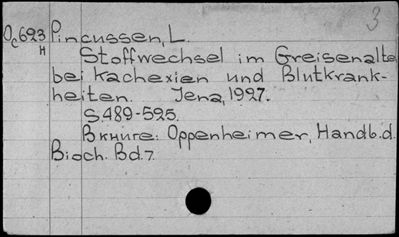 3
Oc623 Pincussen, L.
H
Stoffwechsel im Greisenalte
bei Kachexien und Blutkrank-
heiten. Jena, 1927.
S. 489-525.
В книге: Oppenheimer, Handb. d.
Bioch. Bd. 7.